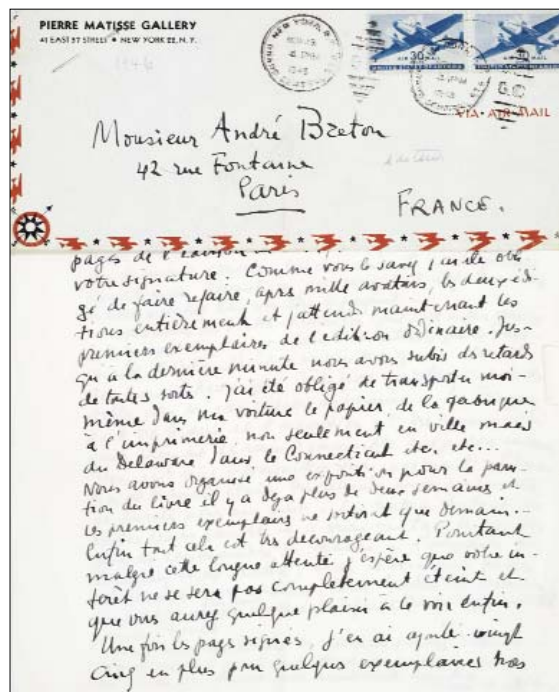 PIERRE MATISSE GALLERY
41 EAST 57 STREET • NEW YORK 22, N.Y.
1946
NEW YORK, N.Y.
30
AIR MAIL
UNITED STATES OF AMERICA
VIA AIR MAIL
Monsieur André Breton
42 rue Fontaine
Paris
FRANCE.
pages de l'édition
votre signature. Comme vous le savez j'ai été obli-
gé de faire refaire, après mille avatars, les deux édi-
tions entièrement et j'attends maintenant les
premiers exemplaires de l'édition ordinaire. Jus-
qu'à la dernière minute nous avons subis des retards
de toutes sorts. J'ai été obligé de transporter moi-
même dans ma voiture le papier de la fabrique
à l'imprimerie non seulement en ville mais
du Delaware dans le Connecticut etc. etc...
Nous avons organisé une exposition pour la paru-
tion du livre il y a déjà plus de deux semaines et
les premiers exemplaires ne sortiront que demain.
Enfin tout cela est très décourageant. Pourtant
malgré cette longue attente j'espère que votre in-
térêt ne se sera pas complètement éteint et
que vous aurez quelque plaisir à le voir enfin.
Une fois les pages signées, j'en ai ajouté vingt
cinq en plus pour quelques exemplaires hors